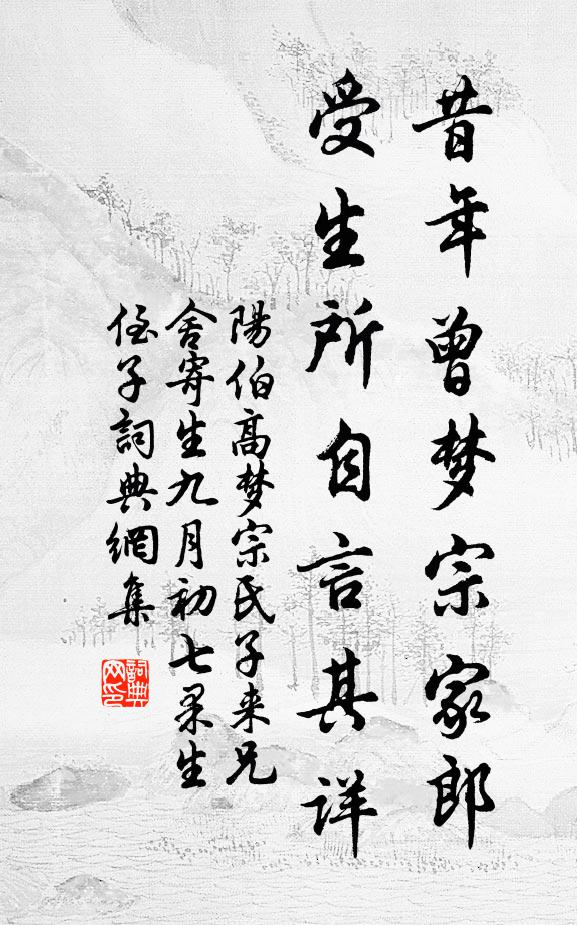 昔年曾梦宗家郎
受生所自言其详
陽伯高梦宗氏子来兄
舍寄生九月初七果生
侄子詞典網集
詞典
网印